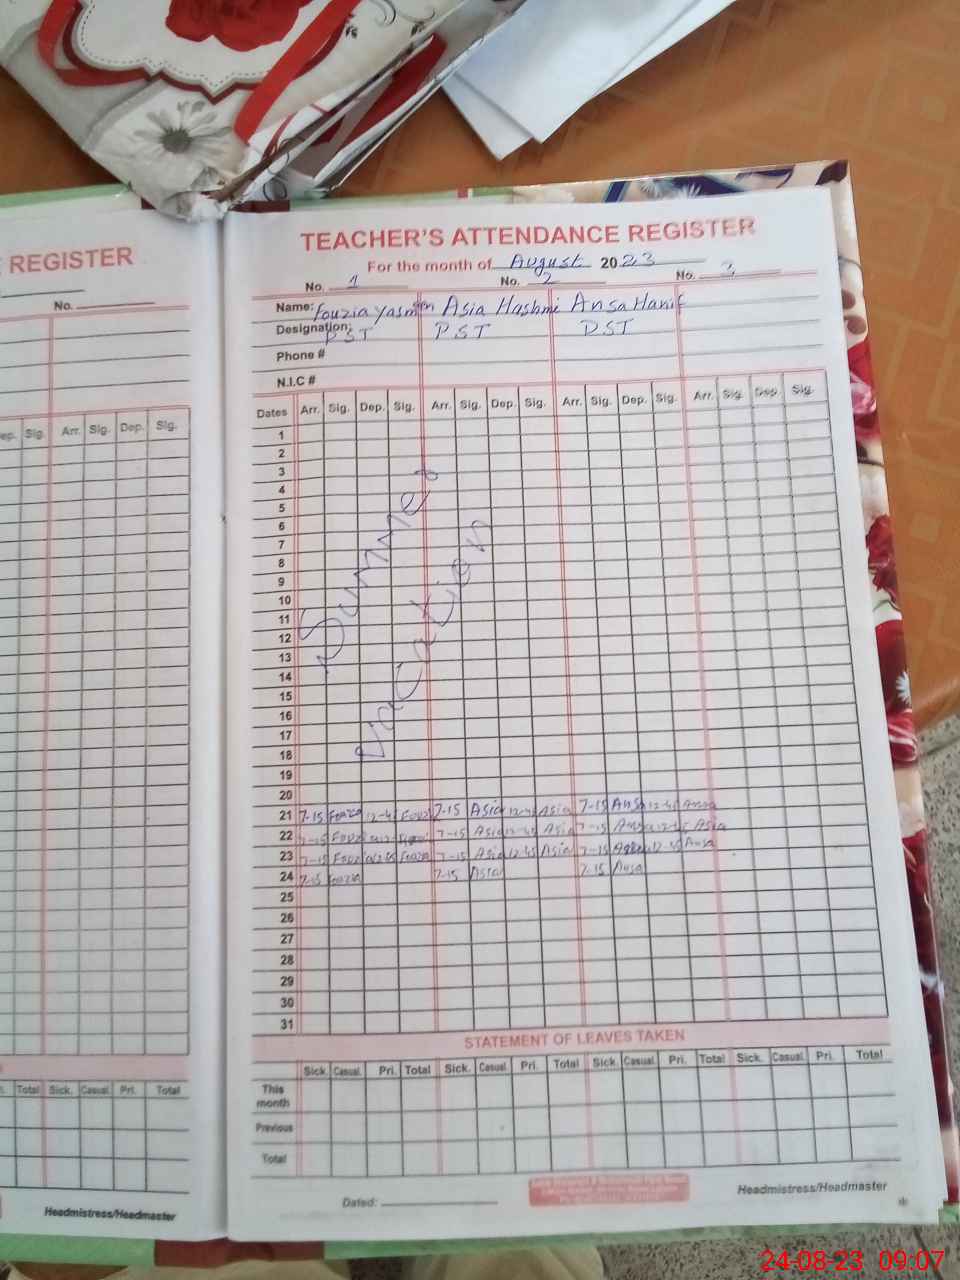 E REGISTER
No.
ep. Sig. Arr. Sig. Dep. Sig.
Total Sick. Casual. Pri. Total
Headmistress/Headmaster
TEACHER'S ATTENDANCE REGISTER
For the month of August 2023
No. 1 No. 2 No. 3
Name: Fouzia Yasmeen Asia Hashmi Ansa Hanif
Designation: PST PST PST
Phone #
N.I.C #
Dates Arr. Sig. Dep. Sig. Arr. Sig. Dep. Sig. Arr. Sig. Dep. Sig. Arr. Sig. Dep. Sig.
1
2
3
4
5
6
7
8
9
10
11
12
13
14
15
16
17
18
19
20
Summer
vacation
21 7-15 Fouzia 12-45 Fouzi 7-15 Asia 12-45 Asia 7-15 Ansa 12-45 Ansa
22 7-15 Fouzi 7-15 Asia 12-45 Asia 7-15 Ansa 12-45 Asia
23 7-15 Fouzia 12-45 Fouzia 7-15 Asia 12-45 Asia 7-15 12-45 Ansa
24 7-15 Fouzia 7-15 Asia 7-15 Ansa
25
26
27
28
29
30
31
STATEMENT OF LEAVES TAKEN
Sick. Casual. Pri. Total Sick. Casual. Pri. Total Sick. Casual. Pri. Total Sick. Casual. Pri. Total
This month
Previous
Total
Dated:
Headmistress/Headmaster
24-08-23 09:07